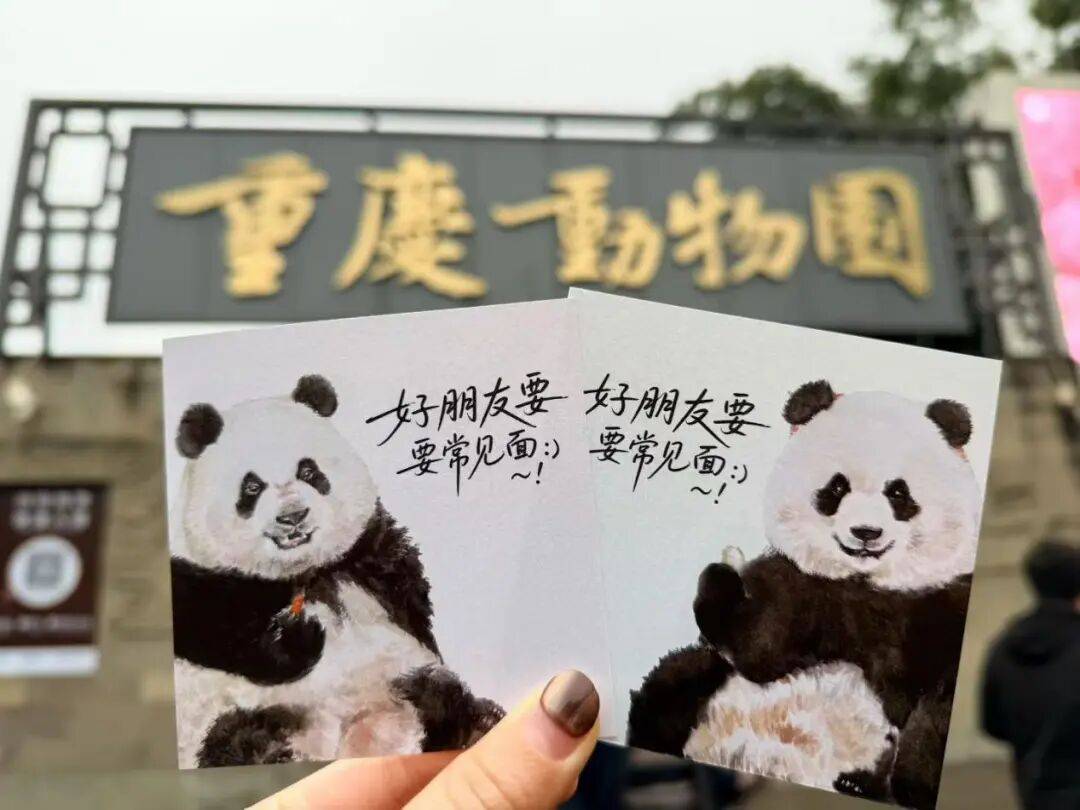 重慶動物園
好朋友要
要常见面:)
~!
好朋友要
要常见面:)
~!